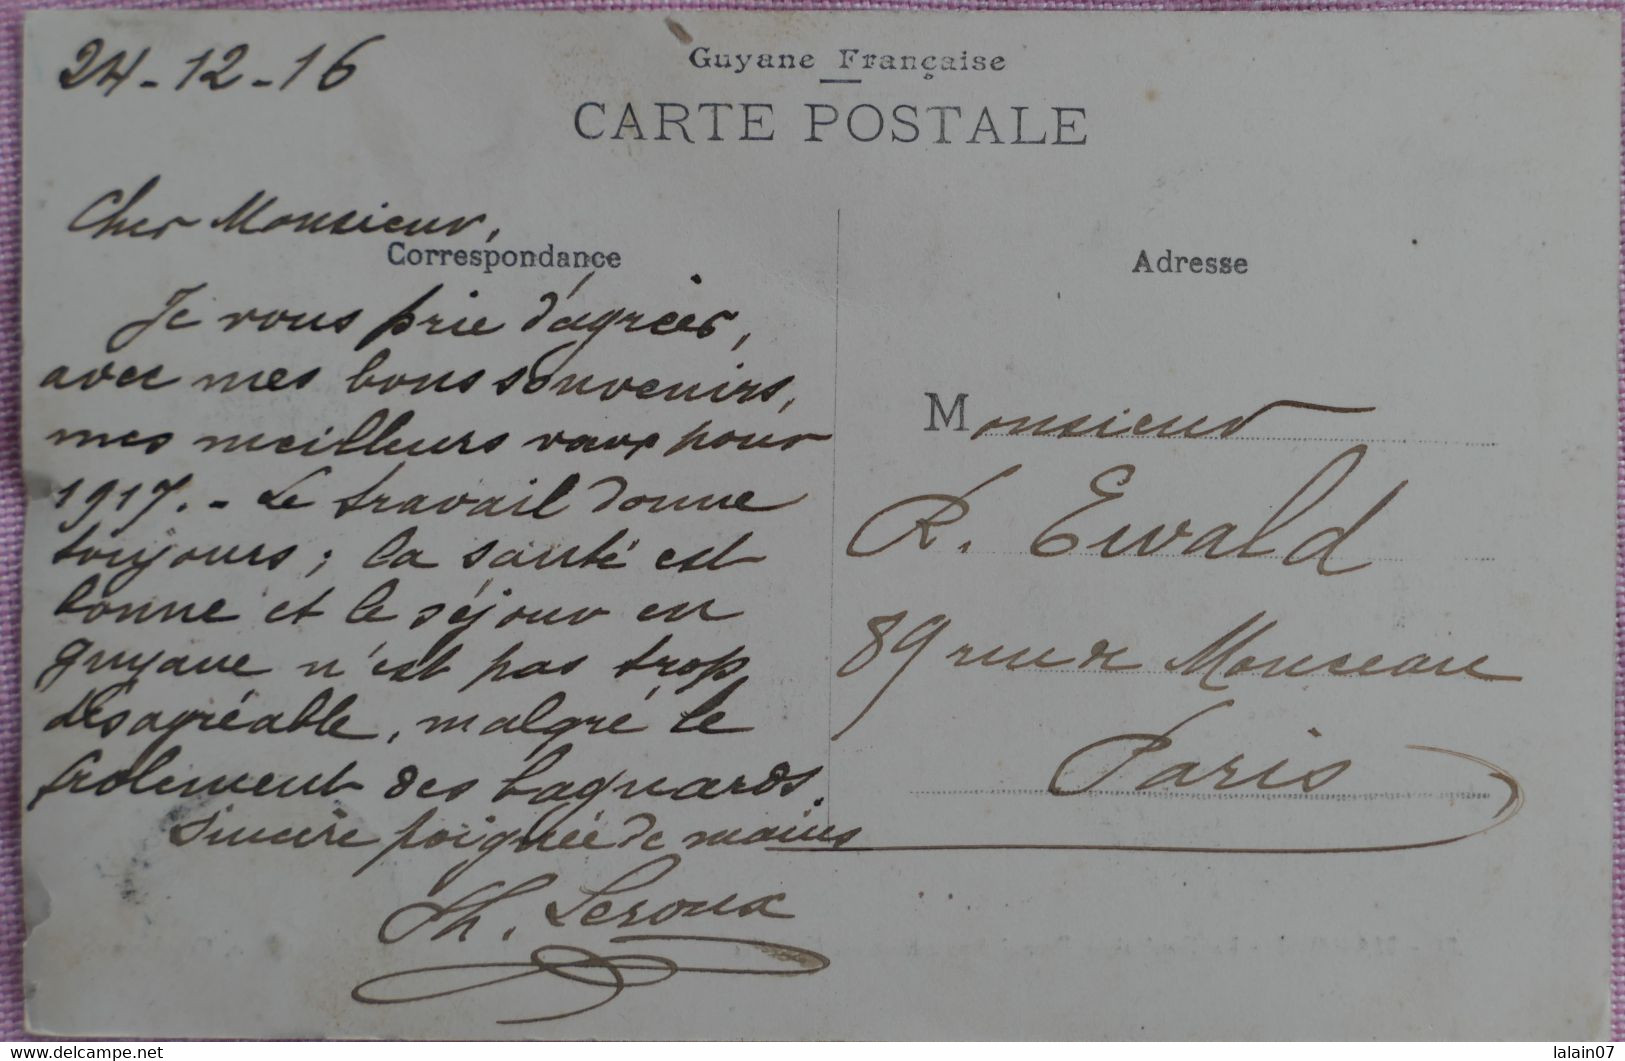 24-12-16
Guyane Française
CARTE POSTALE
Cher Monsieur,
Correspondance
Je vous prie d'agréer,
avec mes bons souvenirs,
mes meilleurs vœux pour
1917. - Le travail donne
toujours ; la santé est
bonne et le séjour en
guyane n'est pas trop
désagréable, malgré le
frôlement des bagnards.
Sincère poignée de mains
Th. Leroux
Adresse
Monsieur
R. Ewald
89 rue de Monceau
Paris
lalain07